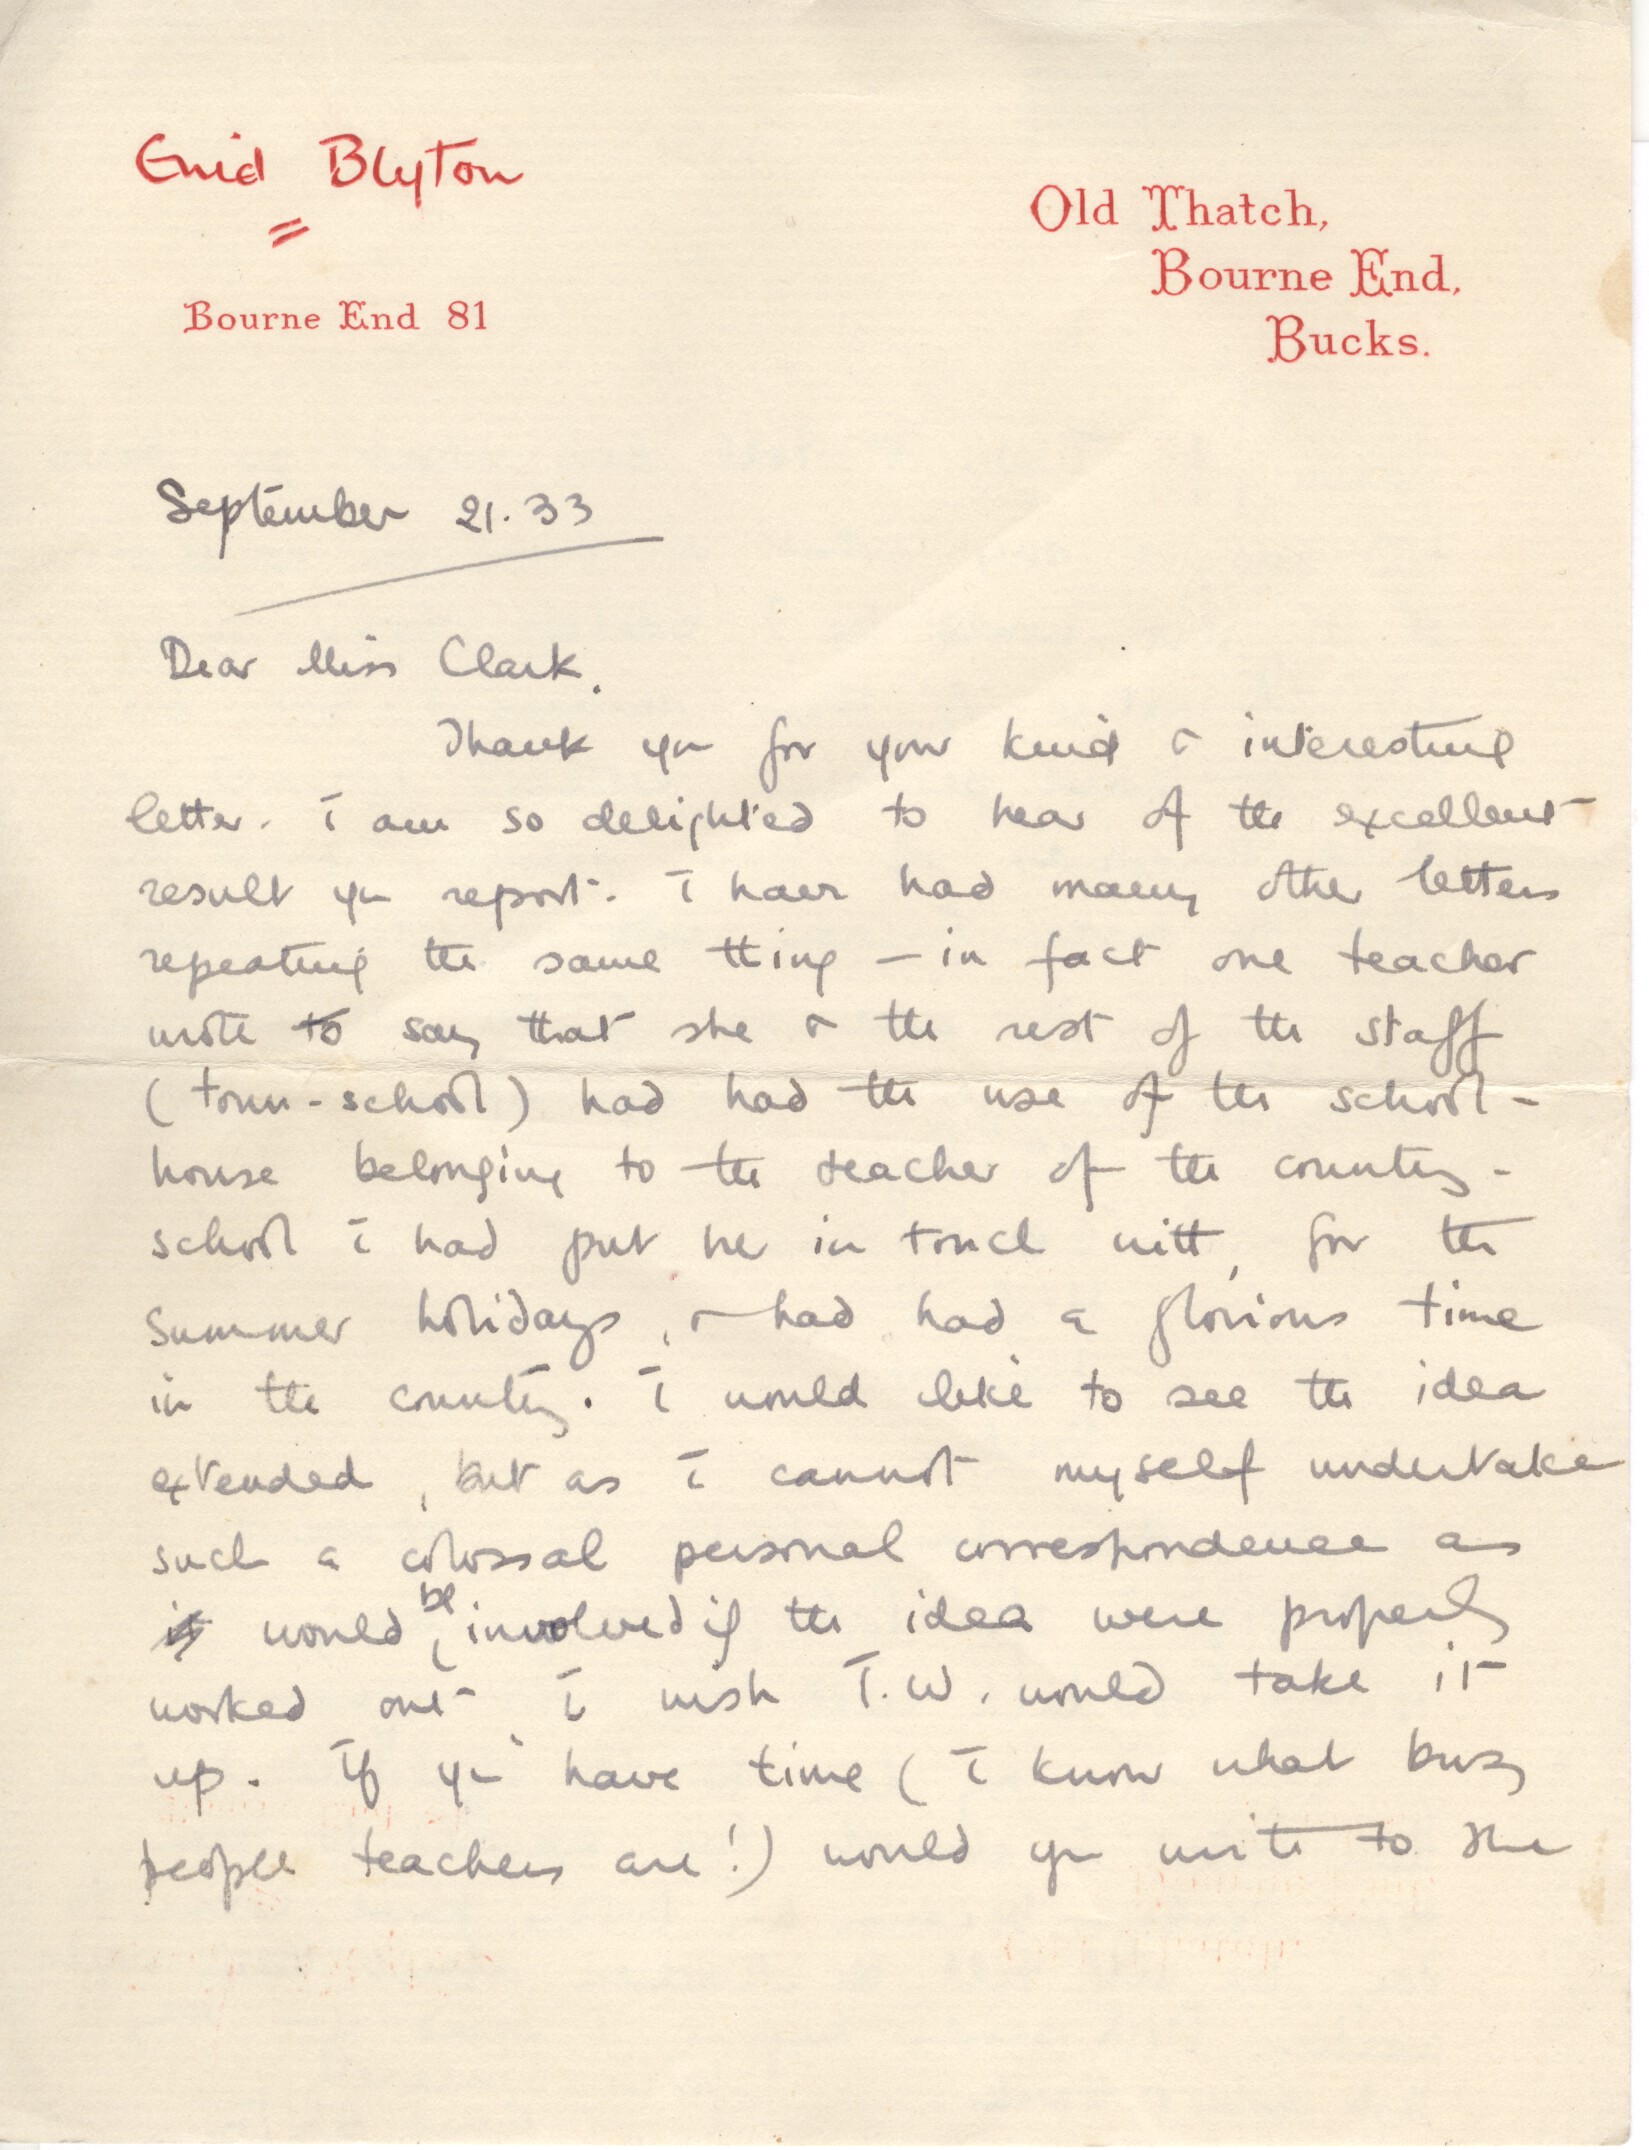 Enid Blyton
Bourne End 81
Old Thatch,
Bourne End,
Bucks.
September 21. 33
Dear Miss Clark.
Thank you for your kind & interesting
letter. I am so delighted to hear of the excellent
result you report. I have had many other letters
repeating the same thing – in fact one teacher
wrote to say that she & the rest of the staff
(town-school) had had the use of the school-
house belonging to the teacher of the country-
school I had put her in touch with, for the
summer holidays, & had had a glorious time
in the country. I would like to see the idea
extended, but as I cannot myself undertake
such a colossal personal correspondence as
would be involved if the idea were properly
worked out I wish T.W. would take it
up. If you have time (I know what busy
people teachers are!) would you write to the